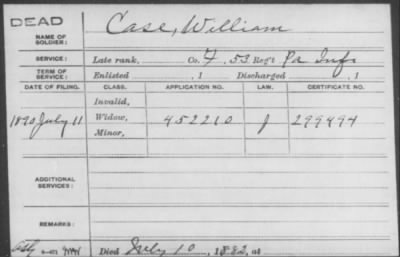 DEAD
NAME OF SOLDIER: Case, William
SERVICE: Late rank, Co. F, 53 Reg't Pa Inf
TERM OF SERVICE: Enlisted , 1 Discharged , 1
DATE OF FILING. CLASS. APPLICATION NO. LAW. CERTIFICATE NO.
Invalid,
1890 July 11 Widow, 452210 J 299494
Minor,
ADDITIONAL SERVICES:
REMARKS:
Died July 10, 1882, at